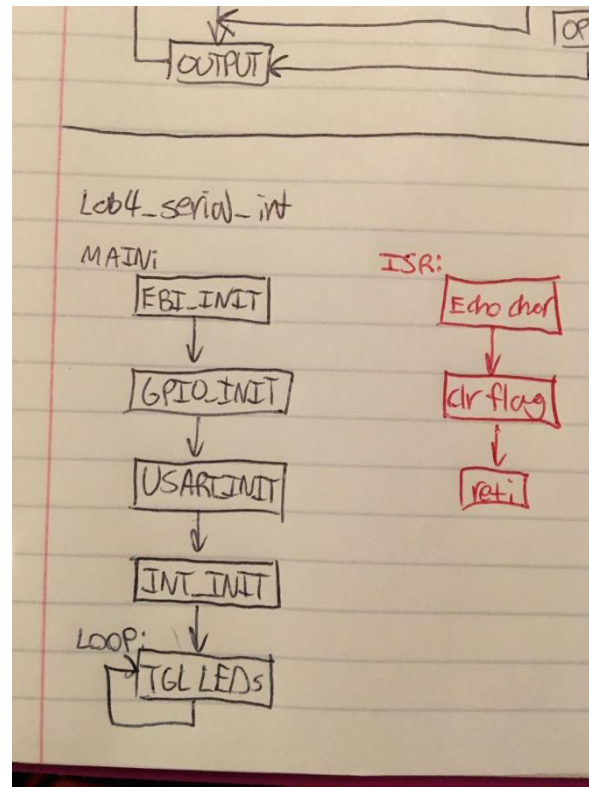 OP
OUTPUT
Lab4_serial_int
MAIN:
EBI_INIT
GPIO_INIT
USART_INIT
INT_INIT
LOOP:
TGL LEDs
ISR:
Echo char
clr flag
reti